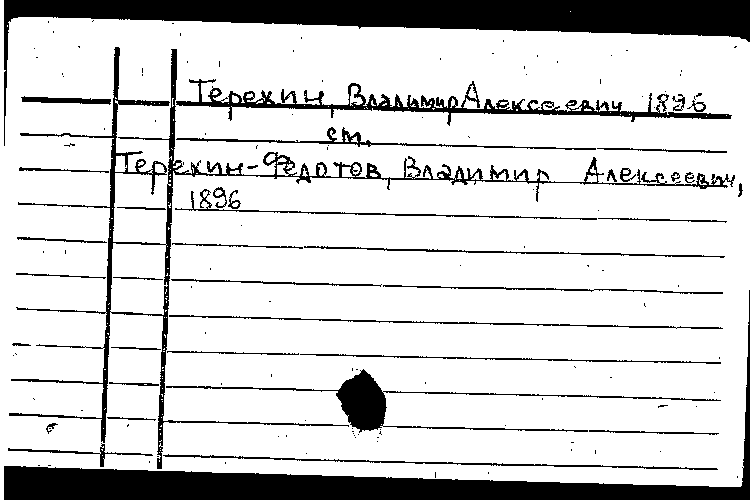 Терехин, Владимир Алексеевич, 1896
см.
Терехин-Федотов, Владимир Алексеевич,
1896